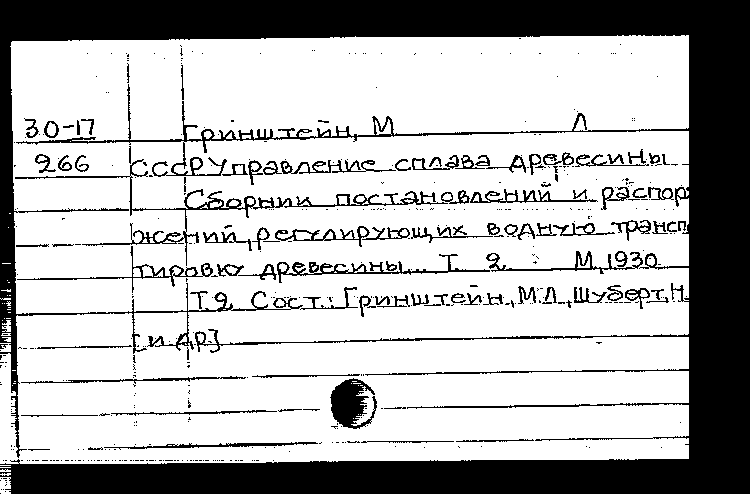 30-17 Гринштейн, М Л
266 СССР Управление сплава древесины
Сборник постановлений и распоря
жений, регулирующих водную трансп
тировку древесины... Т. 2. М, 1930
Т.2. Сост.: Гринштейн, М.Л., Шуберт, Н
[и др]